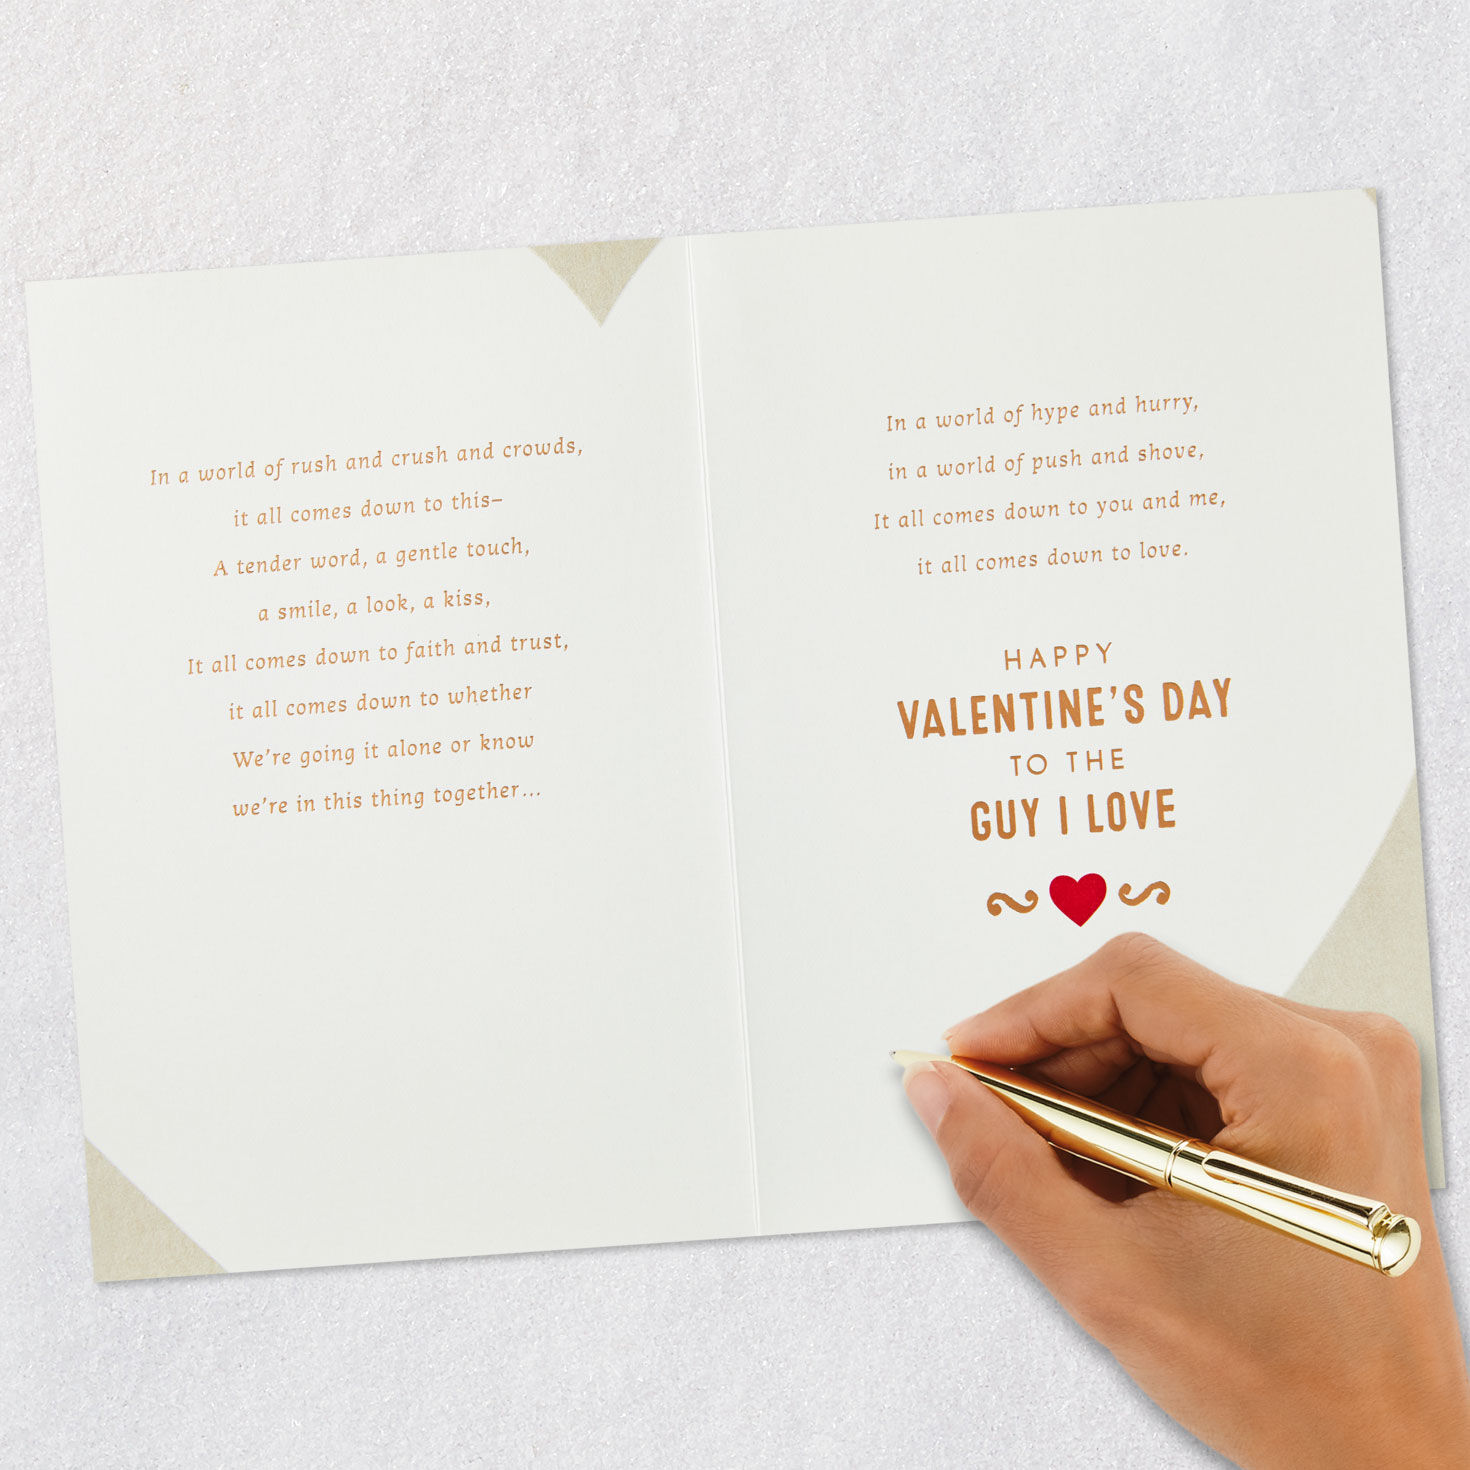 In a world of rush and crush and crowds,
it all comes down to this–
A tender word, a gentle touch,
a smile, a look, a kiss,
It all comes down to faith and trust,
it all comes down to whether
We're going it alone or know
we're in this thing together...
In a world of hype and hurry,
in a world of push and shove,
It all comes down to you and me,
it all comes down to love.
HAPPY
VALENTINE'S DAY
TO THE
GUY I LOVE